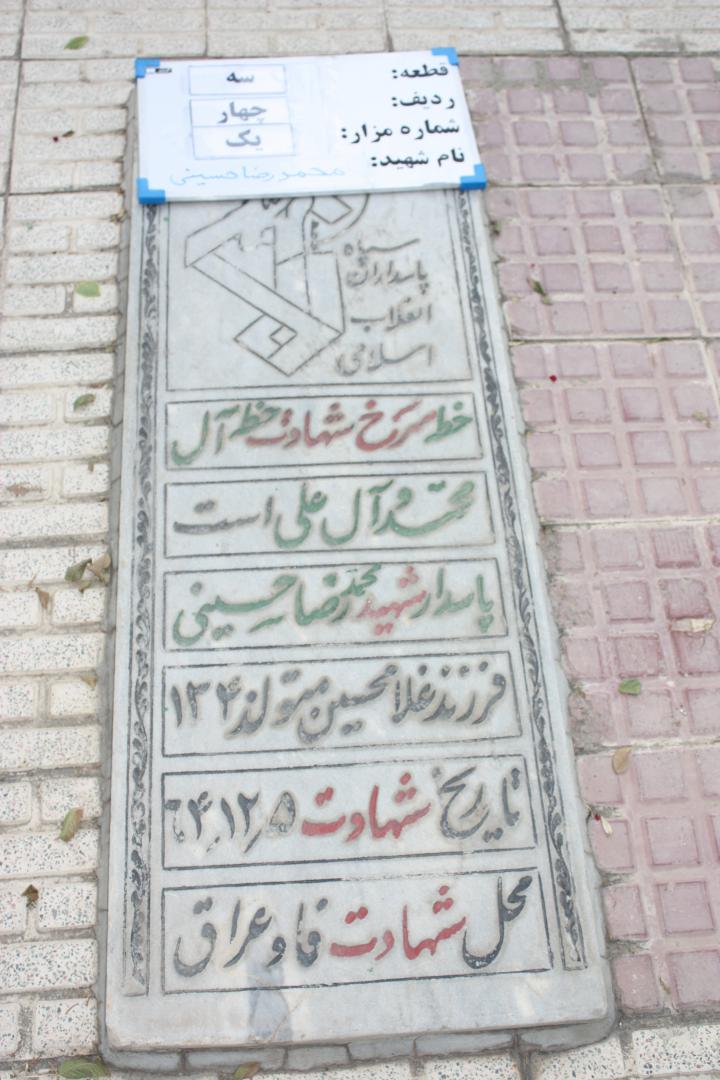 قطعه: سه
ردیف: چهار
شماره مزار: یک
نام شهید: محمدرضا حسینی
سپاه
پاسداران
انقلاب
اسلامی
خط سرخ شهادت خط آل
محمد و آل علی است
پاسدار شهید محمدرضا حسینی
فرزند غلامحسین متولد ۱۳۴۰
تاریخ شهادت ۶۴٫۱۲٫۵
محل شهادت فاو عراق